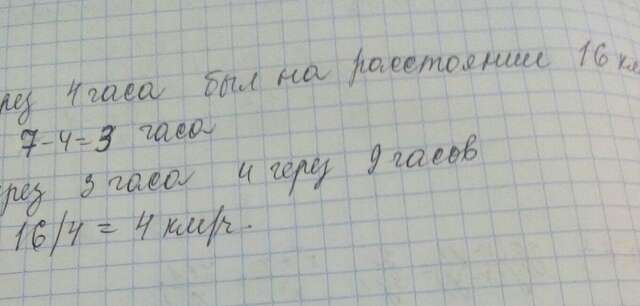 рез 4 часа был на расстоянии 16 км
7-4=3 часа
рез 3 часа и через 9 часов
16/4 = 4 км/ч.